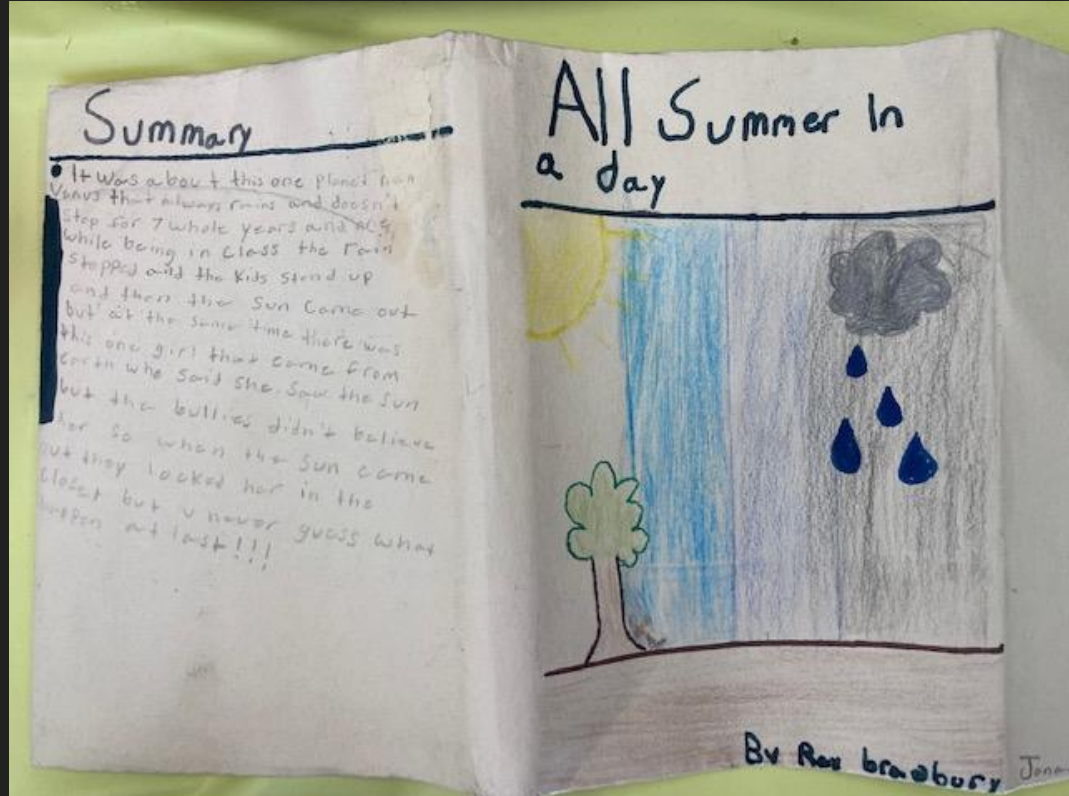 Summary
• It was about this one planet
Venus that always rains and doesn't
stop for 7 whole years and
while being in class the rain
stopped and the kids stand up
and then the sun came out
but at the same time there was
this one girl that came from
earth who said she saw the sun
but the bullies didn't believe
her so when the sun came
out they locked her in the
closet but u never guess what
happen at last!!!
All Summer In
a day
By Ray bradbury